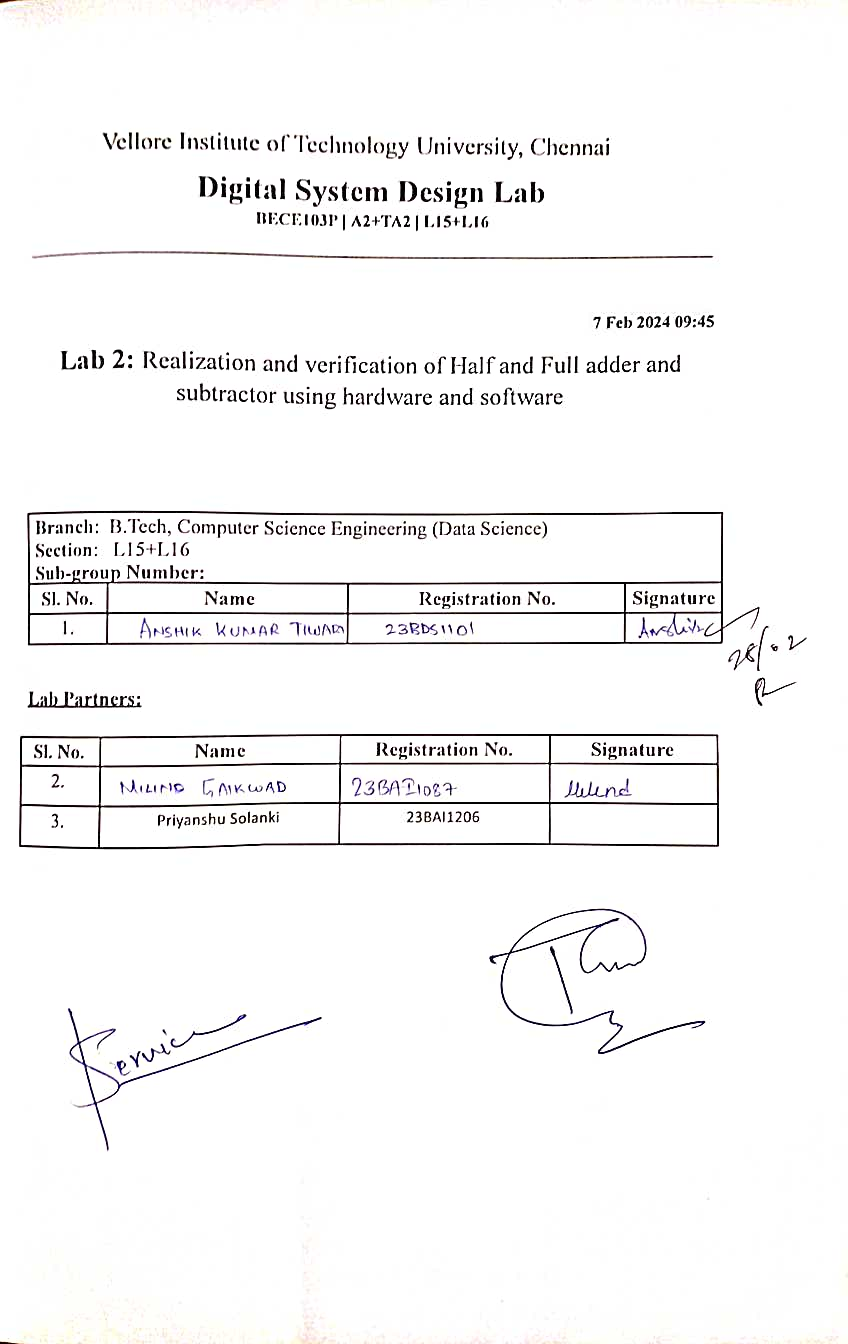 Vellore Institute of Technology University, Chennai
Digital System Design Lab
BECE103P | A2+TA2 | L15+L16
7 Feb 2024 09:45
Lab 2: Realization and verification of Half and Full adder and
subtractor using hardware and software
Branch: B.Tech, Computer Science Engineering (Data Science)
Section: L15+L16
Sub-group Number:
Sl. No. Name Registration No. Signature
1. ANSHIK KUMAR TIWARI 23BDS1101
28/02
Lab Partners:
Sl. No. Name Registration No. Signature
2. MILIND GAIKWAD 23BAI1087 Milind
3. Priyanshu Solanki 23BAI1206